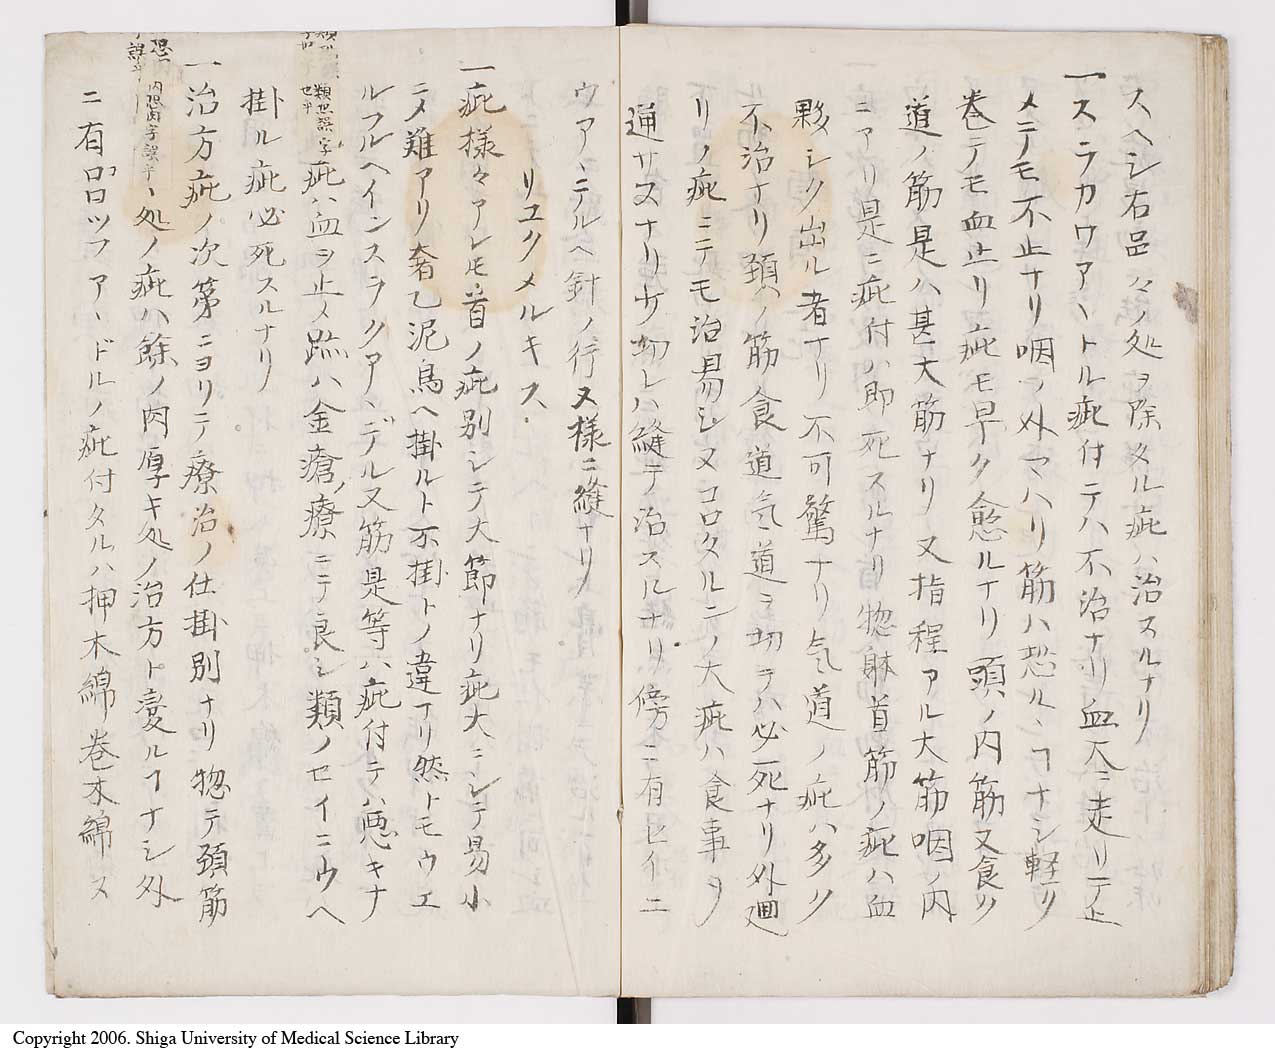 スヘシ右品々ノ処ヲ除タル疵ハ治スルナリ
一スラカワアヽトル疵付テハ不治ナリ血大ニ走リテ止
メテモ不止サリ咽ヲ外マハリ筋ハ恐ルヽコナシ軽クリ
巻テモ血止リ疵モ早ク愈ルナリ頭ノ内筋又食ツ
道ノ筋是ハ甚大筋ナリ又指程アル大筋咽ノ内
ニアリ是ニ疵付ハ即死スルナリ惣躰首筋ノ疵ハ血
夥シク出ル者ナリ不可驚ナリ気道ノ疵ハ多ク
不治ナリ頚ハノ筋食道気道ミ切テハ必死ナリ外廻
リノ疵ミテモ治易シヌコロタルニノ大疵ハ食事ヲ
通サスナリサ切レハ縫テ治スルナリ傍ニ有セイニ
ウアヽニテルヘ針ノ行又様ニ縫ナリ
リユクメルキス
一疵様々アレモ首ノ疵別シテ大節ナリ疵大ニシテ易小
ニメ難アリ奢乙泥鳥ヘ掛ルト不掛トノ違アリ然トモウエ
ルフルヘインスヲクアヽデル又筋是等ハ疵付テハ悪キナ
疵ハ血ヲ止メ跡ハ金瘡療ニテ良シ類ノセイニウヘ
掛ル疵必死スルナリ
一治方疵ノ次第ニヨリテ療治ノ仕掛別ナリ惣テ頚筋
処ノ疵ハ餘ノ肉厚キ処ノ治方ト変ルコナシ外
ニ有品ロツフアヽドルノ疵付タルハ押木綿巻木綿ス
類恐誤字
也乎
内恐肉字誤乎
Copyright 2006. Shiga University of Medical Science Library